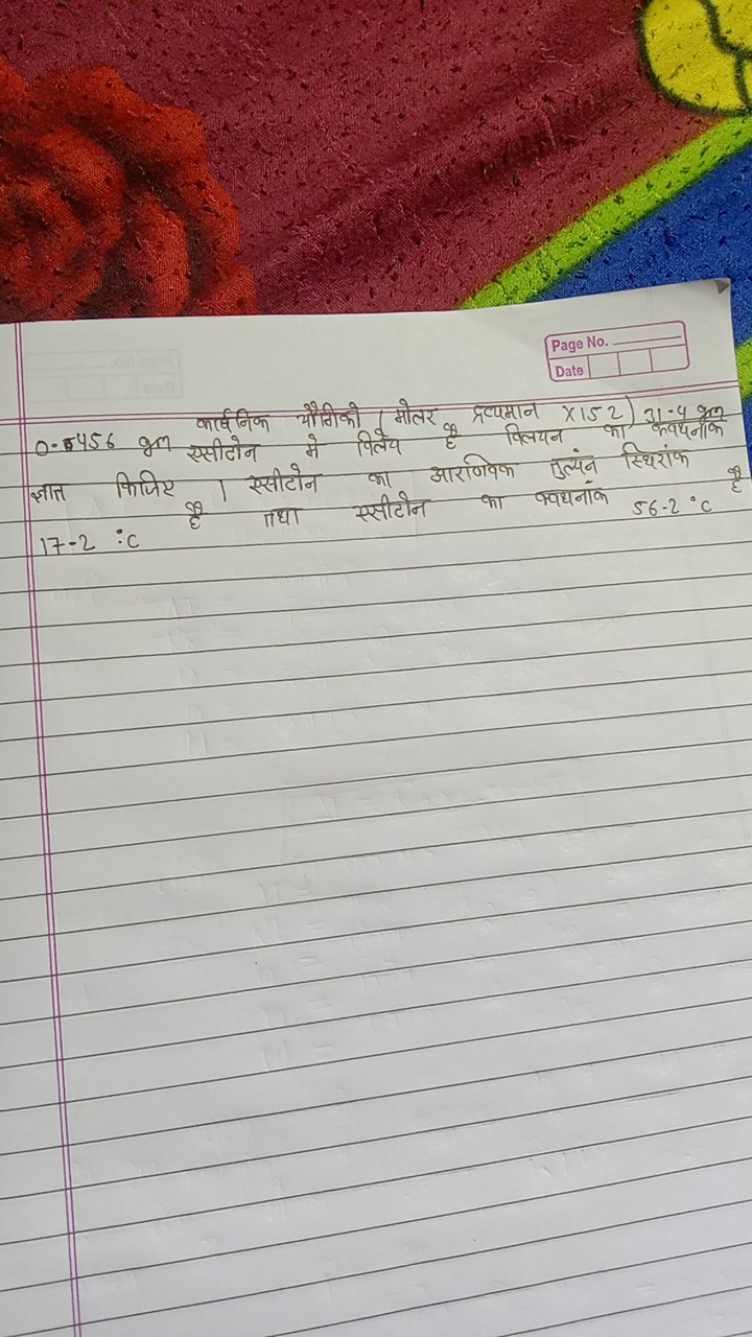 Page No.
Date
0-5456 gm कार्बनिक यौगिको ( मोलर द्रव्यमान X152) 31-4 gm
एसीटोन मे विलेय है विलयन का क्वथनांक
ज्ञात किजिए । एसीटोन का आणविक स्थिरांक
17-2 °C है तथा एसीटोन का क्वथनांक 56-2 °C है